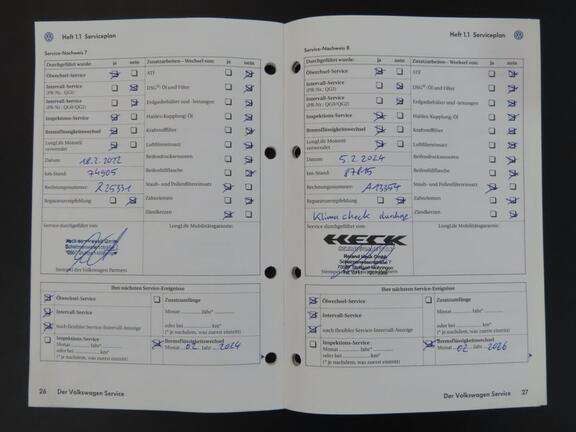 Heft 1.1 Serviceplan
Service-Nachweis 7
Durchgeführt wurde: ja nein
Zusatzarbeiten – Wechsel von: ja nein
Ölwechsel-Service
ATF
Intervall-Service
(PR-Nr.: QG1)
DSG®-Öl und Filter
Intervall-Service
(PR-Nr.: QG0/QG2)
Erdgasbehälter und -leitungen
Inspektions-Service
Haldex-Kupplung-Öl
Bremsflüssigkeitswechsel
Kraftstofffilter
LongLife Motoröl
verwendet
Luftfiltereinsatz
Datum: 18.2.2022
Reifendrucksensoren
km-Stand: 74905
Reifenfüllflasche
Rechnungsnummer: R25331
Staub- und Pollenfiltereinsatz
Reparaturempfehlung
Zahnriemen
Zündkerzen
Service durchgeführt von:
LongLife Mobilitätsgarantie:
Stempel des Volkswagen Partners
Ihre nächsten Service-Ereignisse
Ölwechsel-Service
Zusatzumfänge
Intervall-Service
Monat Jahr*
nach flexibler Service-Intervall-Anzeige
oder bei km*
(* je nachdem, was zuerst eintritt)
Inspektions-Service
Monat Jahr*
oder bei km*
(* je nachdem, was zuerst eintritt)
Bremsflüssigkeitswechsel
Monat 02 Jahr 2024
26 Der Volkswagen Service
Heft 1.1 Serviceplan
Service-Nachweis 8
Durchgeführt wurde: ja nein
Zusatzarbeiten – Wechsel von: ja nein
Ölwechsel-Service
ATF
Intervall-Service
(PR-Nr.: QG1)
DSG®-Öl und Filter
Intervall-Service
(PR-Nr.: QG0/QG2)
Erdgasbehälter und -leitungen
Inspektions-Service
Haldex-Kupplung-Öl
Bremsflüssigkeitswechsel
Kraftstofffilter
LongLife Motoröl
verwendet
Luftfiltereinsatz
Datum: 5.2.2024
Reifendrucksensoren
km-Stand: 87815
Reifenfüllflasche
Rechnungsnummer: A13354
Staub- und Pollenfiltereinsatz
Reparaturempfehlung
Zahnriemen
Klimacheck
Zündkerzen
Service durchgeführt von:
LongLife Mobilitätsgarantie:
HECK
Roland Heck GmbH
Ihre nächsten Service-Ereignisse
Ölwechsel-Service
Zusatzumfänge
Intervall-Service
Monat Jahr*
nach flexibler Service-Intervall-Anzeige
oder bei km*
(* je nachdem, was zuerst eintritt)
Inspektions-Service
Monat Jahr*
oder bei km*
(* je nachdem, was zuerst eintritt)
Bremsflüssigkeitswechsel
Monat 02 Jahr 2026
Der Volkswagen Service 27